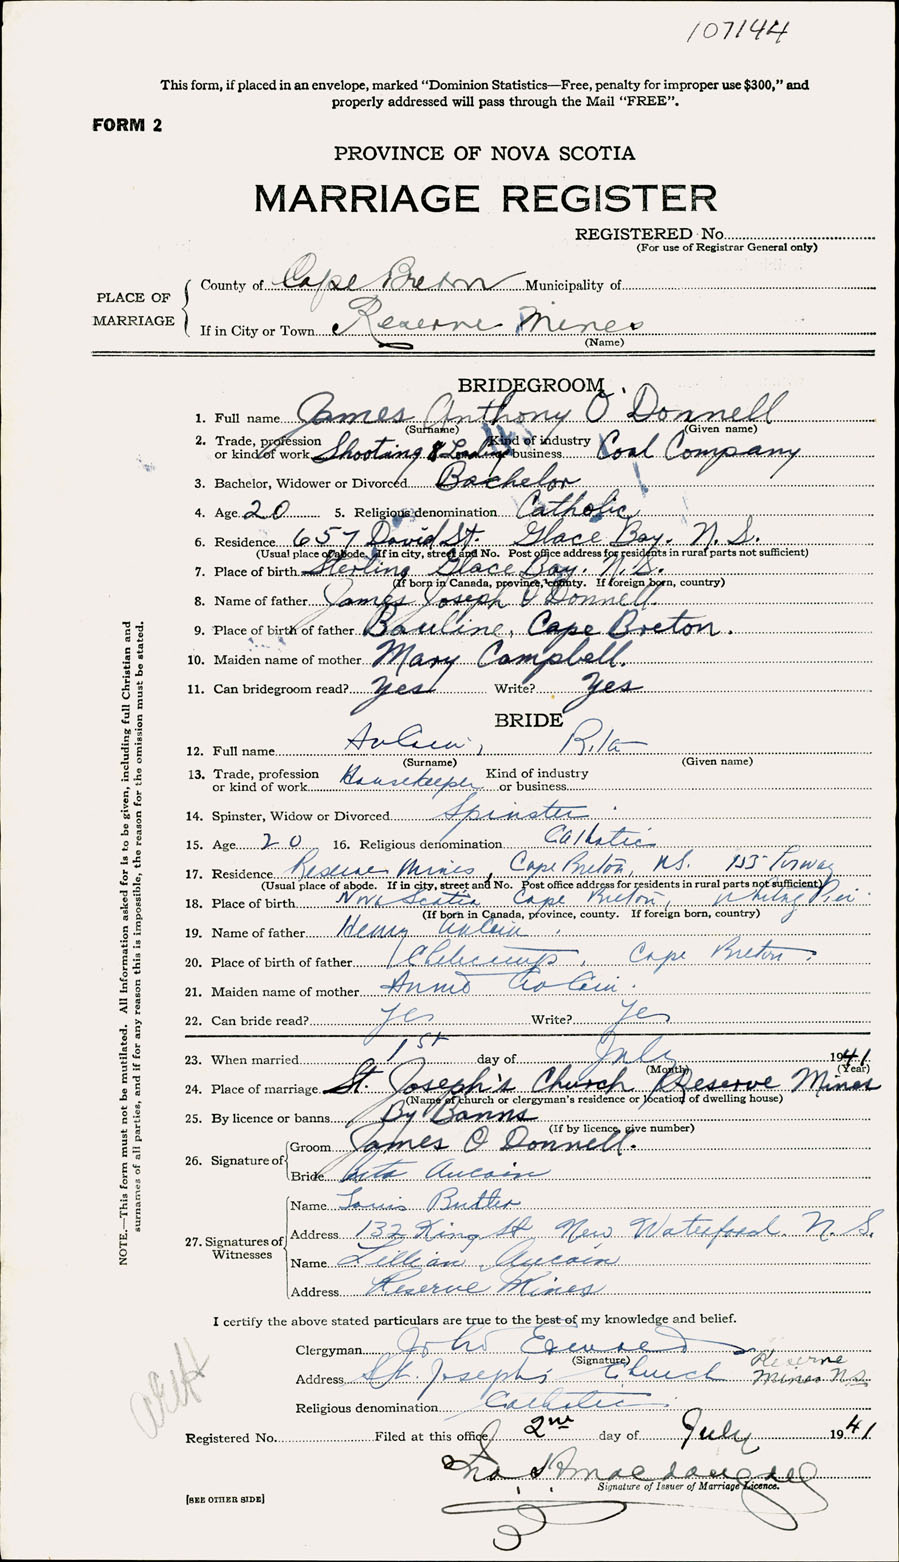 107144
This form, if placed in an envelope, marked "Dominion Statistics—Free, penalty for improper use $300," and
properly addressed will pass through the Mail "FREE".
FORM 2
PROVINCE OF NOVA SCOTIA
MARRIAGE REGISTER
REGISTERED No.
(For use of Registrar General only)
PLACE OF MARRIAGE
County of Cape Breton Municipality of
If in City or Town Reserve Mines
(Name)
BRIDEGROOM
1. Full name James Anthony O'Donnell
(Surname) (Given name)
2. Trade, profession or kind of work Shooting & Loading Kind of industry or business Coal Company
3. Bachelor, Widower or Divorced Bachelor
4. Age 20 5. Religious denomination Catholic
6. Residence 657 David St. Glace Bay. N. S.
(Usual place of abode. If in city, street and No. Post office address for residents in rural parts not sufficient)
7. Place of birth Sterling Glace Bay. N. S.
(If born in Canada, province, county. If foreign born, country)
8. Name of father James Joseph O'Donnell
9. Place of birth of father Bauline, Cape Breton.
10. Maiden name of mother Mary Campbell.
11. Can bridegroom read? Yes Write? Yes
BRIDE
12. Full name Aucoin, Rita
(Surname) (Given name)
13. Trade, profession or kind of work Housekeeper Kind of industry or business
14. Spinster, Widow or Divorced Spinster
15. Age 20 16. Religious denomination Catholic
17. Residence Reserve Mines, Cape Breton, N.S. 155
(Usual place of abode. If in city, street and No. Post office address for residents in rural parts not sufficient)
18. Place of birth Nova Scotia Cape Breton, Whitney Pier
(If born in Canada, province, county. If foreign born, country)
19. Name of father Henry Aucoin
20. Place of birth of father Cheticamp, Cape Breton
21. Maiden name of mother Annie Aucoin.
22. Can bride read? Yes Write? Yes
23. When married 1st day of July 1941
(Month) (Year)
24. Place of marriage St. Joseph's Church Reserve Mines
(Name of church or clergyman's residence or location of dwelling house)
25. By licence or banns By Banns
(If by licence, give number)
26. Signature of Groom James O Donnell.
Bride Rita Aucoin
27. Signatures of Witnesses
Name Louis Butler
Address 132 King St New Waterford. N. S.
Name Lillian Aucoin
Address Reserve Mines
I certify the above stated particulars are true to the best of my knowledge and belief.
Clergyman John
(Signature)
Address St. Joseph's Church Reserve Mines N.S.
Religious denomination Catholic
Registered No. Filed at this office 2nd day of July 1941
MacDougall
Signature of Issuer of Marriage Licence.
[SEE OTHER SIDE]
NOTE.—This form must not be mutilated. All Information asked for is to be given, including full Christian and
surnames of all parties, and if for any reason this is impossible, the reason for the omission must be stated.